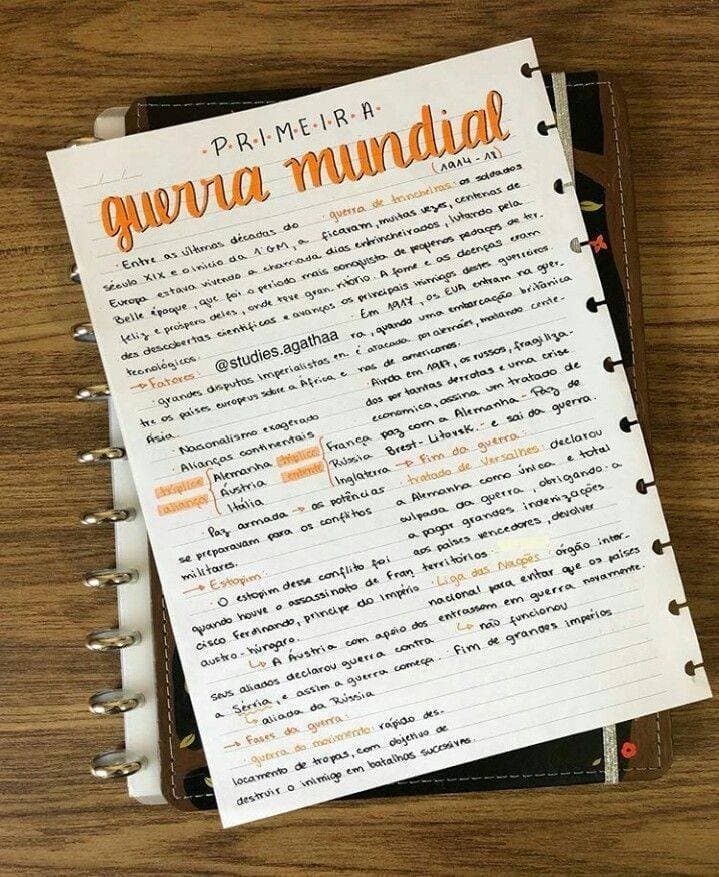 PRIMEIRA
guerra mundial
(1914-18)
· Entre as últimas décadas do
século XIX e o início da 1ª GM, a
Europa estava vivendo a chamada
Belle époque, que foi o período mais
feliz e próspero deles, onde teve gran
des descobertas científicas e avanços
tecnológicos.
@studies.agathaa
→ Fatores:
· grandes disputas imperialistas en
tre os países europeus sobre a África e
Ásia.
· Nacionalismo exagerado
· Alianças continentais
tríplice aliança { Alemanha
Áustria
Itália
tríplice entente { França
Rússia
Inglaterra
· Paz armada → as potências
se preparavam para os conflitos
militares.
→ Estopim:
· O estopim desse conflito foi
quando houve o assassinato de Fran
cisco Ferdinando, príncipe do Império
austro-húngaro.
↳ A Áustria com apoio dos
seus aliados declarou guerra contra
a Sérvia, e assim a guerra começa.
↳ aliada da Rússia
→ Fases da guerra:
· guerra do movimento: rápido des-
locamento de tropas, com objetivo de
destruir o inimigo em batalhas sucessivas.
· guerra de trincheiras: os soldados
ficavam, muitas vezes, centenas de
dias entrincheirados, lutando pela
conquista de pequenos pedaços de ter.
ritório. A fome e as doenças eram
os principais inimigos destes guerreiros.
· Em 1917, os EUA entram na guer.
ra, quando uma embarcação britânica
é atacada por alemães, matando cente-
nas de americanos.
· Ainda em 1917, os russos, fragiliza-
dos por tantas derrotas e uma crise
economica, assina um tratado de
paz com a Alemanha - Paz de
Brest-Litovsk - e sai da guerra.
→ Fim da guerra:
· tratado de Versalhes: declarou
a Alemanha como única e total
culpada da guerra, obrigando-a
a pagar grandes indenizações
aos países vencedores, devolver
territórios.
· Liga das Nações: órgão inter-
nacional para evitar que os países
entrassem em guerra novamente.
↳ não funcionou
· Fim de grandes impérios